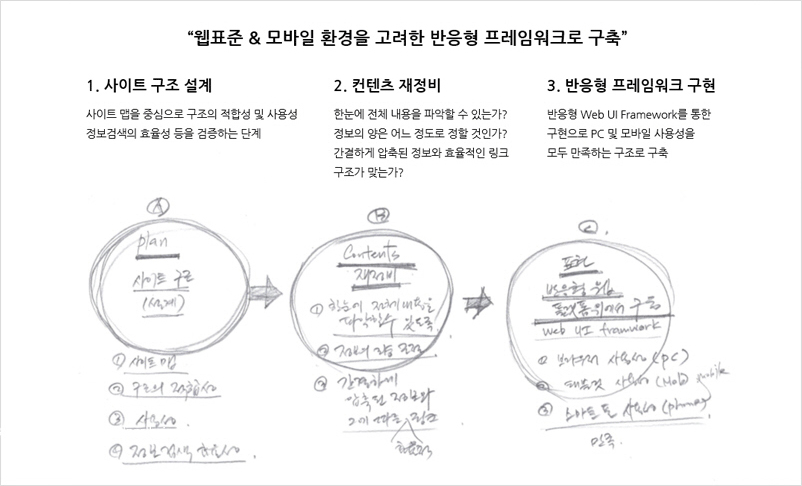 “웹표준 & 모바일 환경을 고려한 반응형 프레임워크로 구축”
1. 사이트 구조 설계
사이트 맵을 중심으로 구조의 적합성 및 사용성
정보검색의 효율성 등을 검증하는 단계
2. 컨텐츠 재정비
한눈에 전체 내용을 파악할 수 있는가?
정보의 양은 어느 정도로 정할 것인가?
간결하게 압축된 정보와 효율적인 링크
구조가 맞는가?
3. 반응형 프레임워크 구현
반응형 Web UI Framework를 통한
구현으로 PC 및 모바일 사용성을
모두 만족하는 구조로 구축
A
plan
사이트 구조
(설계)
① 사이트 맵
② 구조의 적합성
③ 사용성
④ 정보검색 효율성
B
Contents
재정비
① 한눈에 전체내용을
파악할수 있도록
② 정보의 량
③ 간결하게
압축된 정보와
링크
C
표현
반응형 웹
플랫폼위에서 구동
web UI framwork
① 브라우저 사용성 (PC)
② 태블릿 사용성
③ 스마트폰 사용성 (phone)
만족.